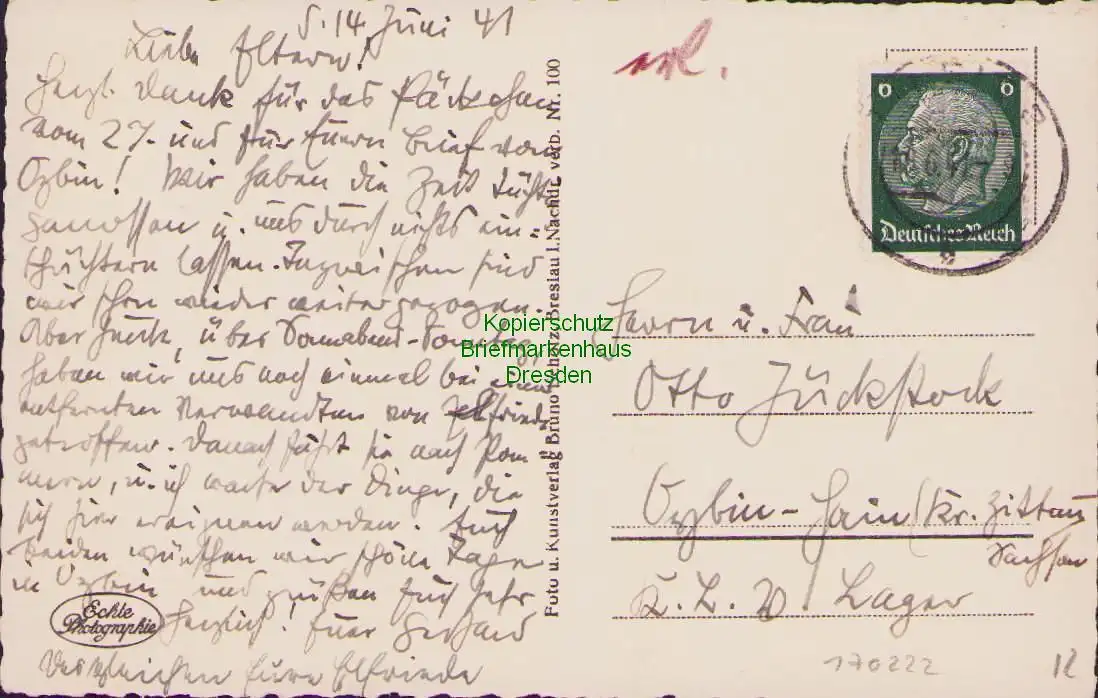 S. 14. Juni 41
Liebe Eltern!
Herzl. Dank für das Päckchen
vom 27. und für Euern Brief vom
Oybin! Wir haben die Zeit tücht.
genossen u. uns durch nichts ein=
schüchtern lassen. Inzwischen sind
wir schon wieder weitergezogen.
Aber heute, über Sonnabend-Sonntag
haben wir uns noch einmal bei einem
entfernten Verwandten von Elfriede
getroffen. Danach fährt sie nach Pom=
mern, u. ich warte der Dinge, die
sich hier ereignen werden. Euch
beiden wünschen wir schöne Tage
in Oybin und grüßen Euch sehr
herzlich! Euer Gerhard
Desgleichen Eure Elfriede
Echte
Photographie
Foto u. Kunstverlag Bruno Scholz, Breslau I. Nachdr. verb. Nr. 100
Deutsches Reich
Kopierschutz
Briefmarkenhaus
Dresden
Herrn u. Frau
Otto Zückstock
Oybin-Hain (Kr. Zittau
Sachsen
K. L. V. Lager
170222
12